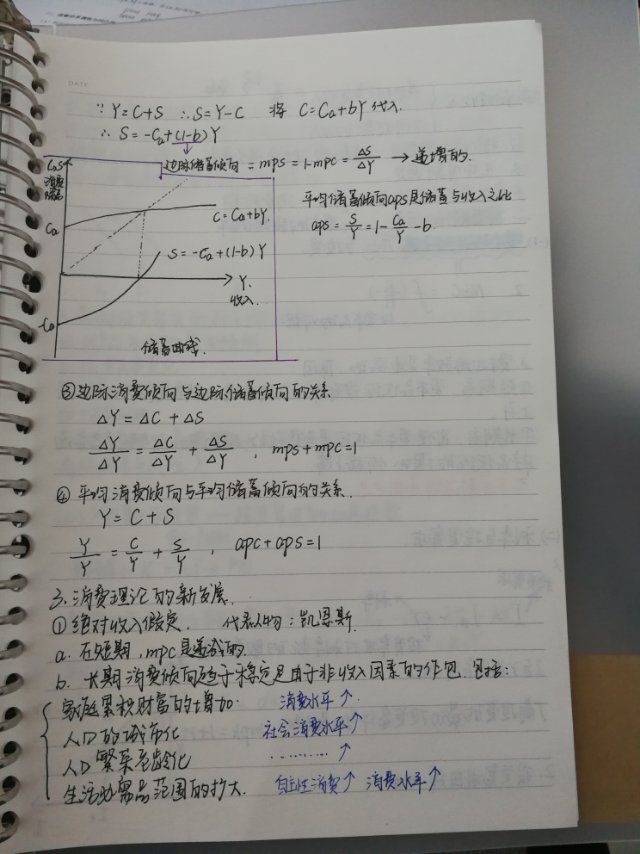 DATE
∵ Y=C+S ∴S=Y-C 将 C=Ca+bY 代入.
∴ S=-Ca+(1-b)Y
边际储蓄倾向 = mps = 1-mpc = ΔS/ΔY → 递增的.
C、S
消费
Ca
C=Ca+bY
S=-Ca+(1-b)Y
Y.
收入
-Ca
储蓄曲线.
平均储蓄倾向aps是储蓄与收入之比
aps = S/Y = 1- Ca/Y -b.
③边际消费倾向与边际储蓄倾向的关系
ΔY = ΔC + ΔS
ΔY/ΔY = ΔC/ΔY + ΔS/ΔY , mps+mpc=1
④ 平均消费倾向与平均储蓄倾向的关系.
Y = C + S
Y/Y = C/Y + S/Y , apc+aps=1
3.消费理论的新发展.
①绝对收入假定. 代表人物:凯恩斯.
a. 在短期,mpc是递减的.
b. 长期消费倾向趋于稳定是由于非收入因素的作用. 包括:
家庭累积财富的增加. 消费水平↑.
人口的城市化 社会消费水平↑
人口繁荣老龄化 ………↑
生活必需品范围的扩大. 自主性消费↑ 消费水平↑